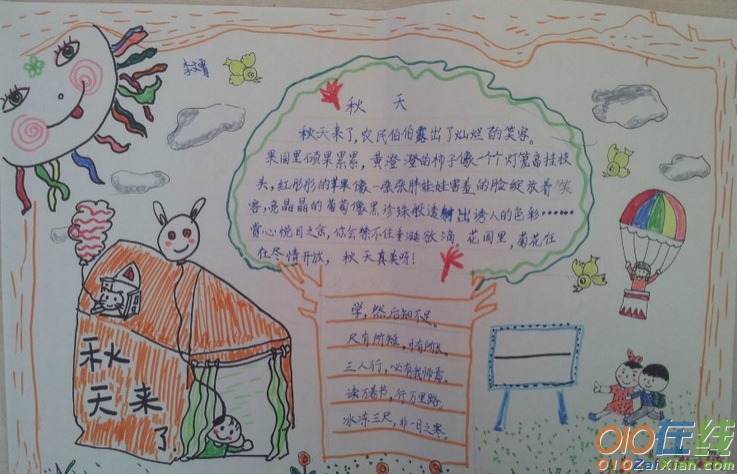 李文青
秋 天
秋天来了,农民伯伯露出了灿烂的笑容。
果园里硕果累累,黄澄澄的柿子像一个个灯笼高挂枝
头,红彤彤的苹果像一张张胖娃娃害羞的脸绽放着笑
容,亮晶晶的葡萄像黑珍珠般透射出诱人的色彩……
赏心悦目之余,你会禁不住垂涎欲滴。花园里,菊花在
在尽情开放, 秋天真美呀!
学,然后知不足。
尺有所短,寸有所长。
三人行,必有我师焉。
读万卷书,行万里路。
冰冻三尺,非一日之寒。
秋
天来
了
010在线
010ZaiXian.com